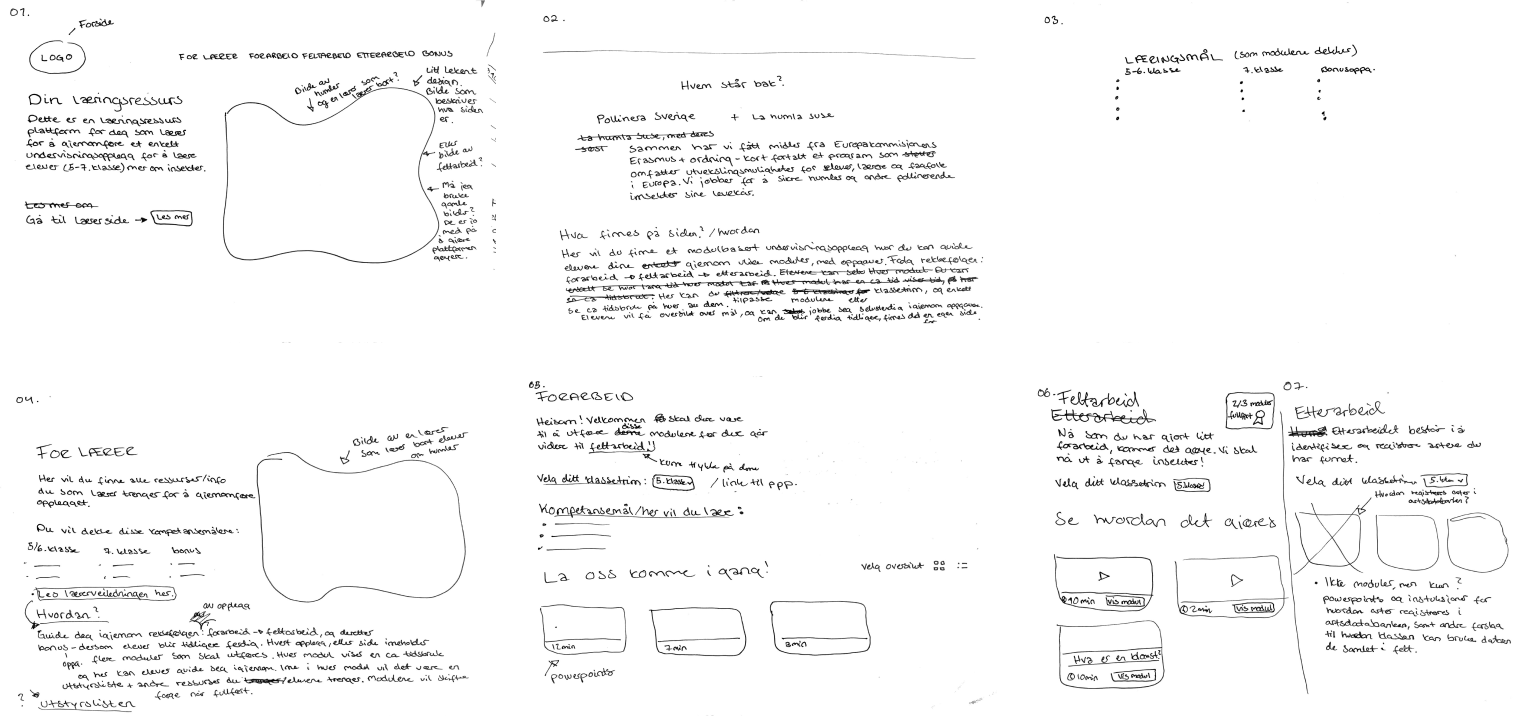 01.
Forside
LOGO
FOR LÆRER FORARBEID FELTARBEID ETTERARBEID BONUS
Bilde av
humler
og en lærer som
lærer bort?
Litt lekent
design.
Bilde som
beskriver
hva siden
er.
Eller
bilde av
feltarbeid?
Må jeg
bruke
gamle
bilder?
De er jo
med på
å gjøre
plattformen
gøyere.
Din læringsressurs
Dette er en lærings
plattform for deg som lærer
for å gjennomføre et enkelt
undervisningsopplegg for å lære
elever (5-7. klasse) mer om insekter.
Les mer om
Gå til lærerside → Les mer
02.
Hvem står bak?
Pollinera Sverige + La humla suse
La humla suse, med deres
søst
Sammen har vi fått midler fra Europakommisjonens
Erasmus + ordning - kort fortalt et program som støtter
omfatter utvekslingsmuligheter for elever, lærere og fagfolk
i Europa. Vi jobber for å sikre humler og andre pollinerende
insekter sine levekår.
Hva finnes på siden? / hvordan
Her vil du finne et modulbasert undervisningsopplegg hvor du kan guide
elevene dine enkelt gjennom ulike moduler, med oppgaver. Følg rekkefølgen:
forarbeid → feltarbeid → etterarbeid. Elevene kan selv
Her kan du filtrere/velge klassetrinn, og enkelt
tilpasse modulene etter
se ca tidsbruk på hver av dem.
Elevene vil få oversikt over mål, og kan jobbe seg selvstendig igjennom oppgavene.
Om de blir ferdig tidligere, finnes det en egen side
for
03.
LÆRINGSMÅL (som modulene dekker)
5-6. klasse 7. klasse Bonusoppg.
04.
FOR LÆRER
Bilde av en lærer
som lærer bort elever
om humler
Her vil du finne alle ressurser/info
du som lærer trenger for å gjennomføre
opplegget.
Du vil dekke disse kompetansemålene:
5/6. klasse 7. klasse bonus
Les lærerveiledningen her.
Hvordan?
av opplegg
Guide deg igjennom rekkefølgen: forarbeid → feltarbeid, og deretter
bonus - dersom elever blir tidligere ferdig. Hvert opplegg, eller side inneholder
oppg. flere moduler som skal utføres. Hver modul viser en ca tidsbruk
og her kan elever guide seg igjennom. Inne i hver modul vil det være en
utstyrsliste + andre ressurser du trenger/elevene trenger. Modulene vil skifte
farge når fullført.
? Utstyrslisten
05.
FORARBEID
Heisann! Velkommen så skal dere være
til å utføre denne disse modulene før dere går
videre til feltarbeid!
Kunne trykke på denne
Velg ditt klassetrinn: 5. klasse / link til ppp.
Kompetansemål/her vil du lære:
La oss komme i gang!
Velg oversikt
12min
7min
8min
powerpoints
06. Feltarbeid
Etterarbeid
2/3 moduler
fullført
Nå som du har gjort litt
forarbeid, kommer det gøye. Vi skal
nå ut å fange insekter!
Velg ditt klassetrinn 5.klasse
Se hvordan det gjøres
10 min Vis modul
2 min Vis modul
Hva er en blomst?
10min Vis modul
07.
Etterarbeid
Etterarbeidet består i å
identifisere og registrere artene du
har funnet.
Velg ditt klassetrinn 5. kla
Hvordan registreres arter i
artsdatabanken?
• Ikke moduler, men kun ?
powerpoints og instuksjoner for
hvordan arter registreres i
artsdatabanken, samt andre forslag
til hvordan klassen kan bruke dataen
de samlet i felt.